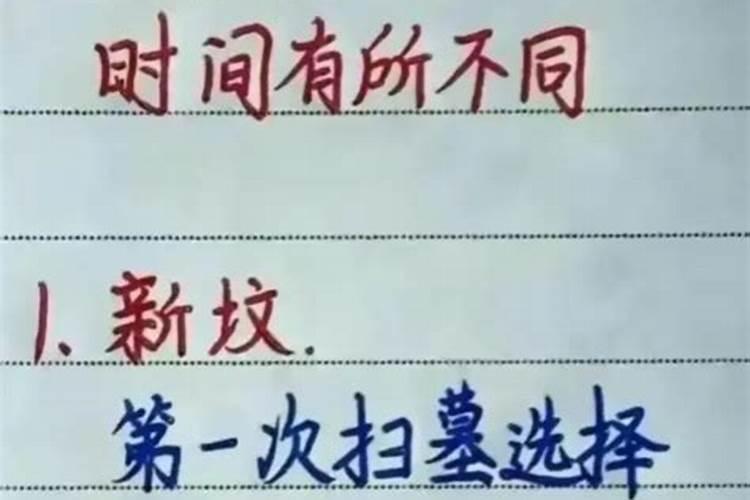 时间有所不同
1、新坟.
第一次扫墓选择